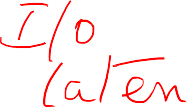 I/O
laten